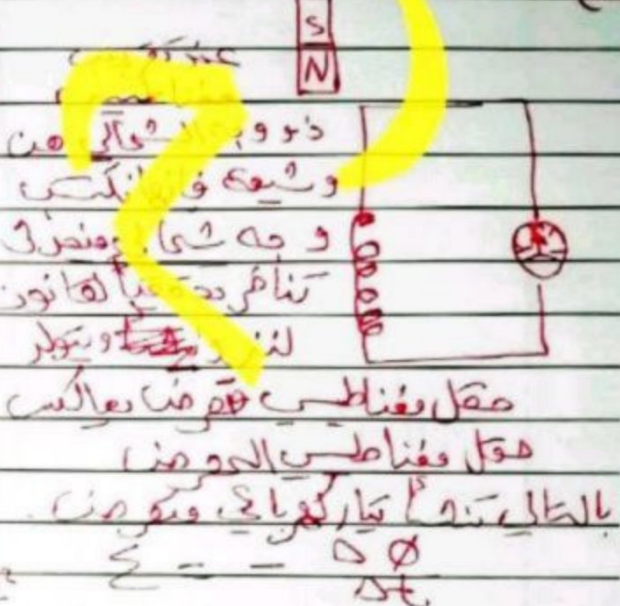 S
N
عند تقريب
ذو وجه الشمالي من
وشيعة فإنها تكتسب
وجه شمالي
تنافر تحقيقاً لقانون
لنز ويتولد
حقل مغناطيسي متحرض يعاكس
حقل مغناطيسي المحرض
بالتالي تنشأ تيار كهربائي متحرض.
ε = - Δφ
Δt